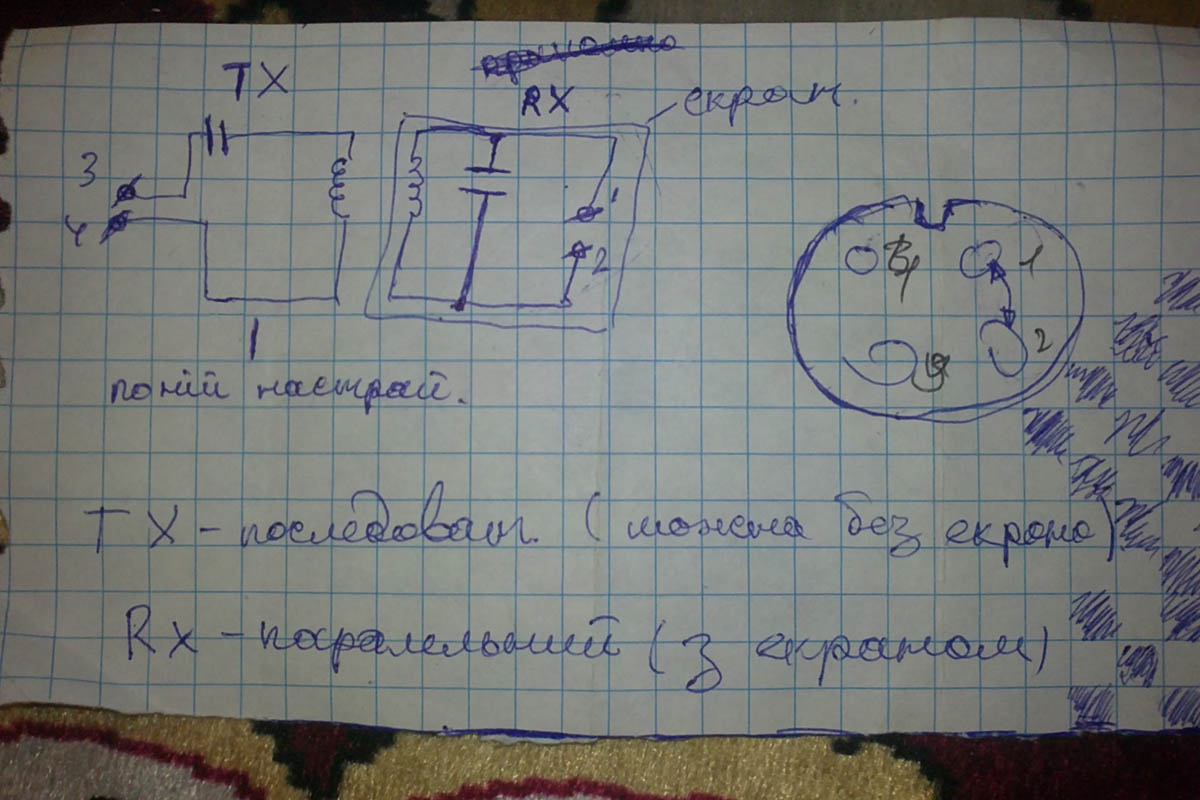 TX
RX
екран.
3
4
1
2
4 1
3 2
настрай.
TX - последоват. (можна без екрана)
Rx - паралельний (з екраном)